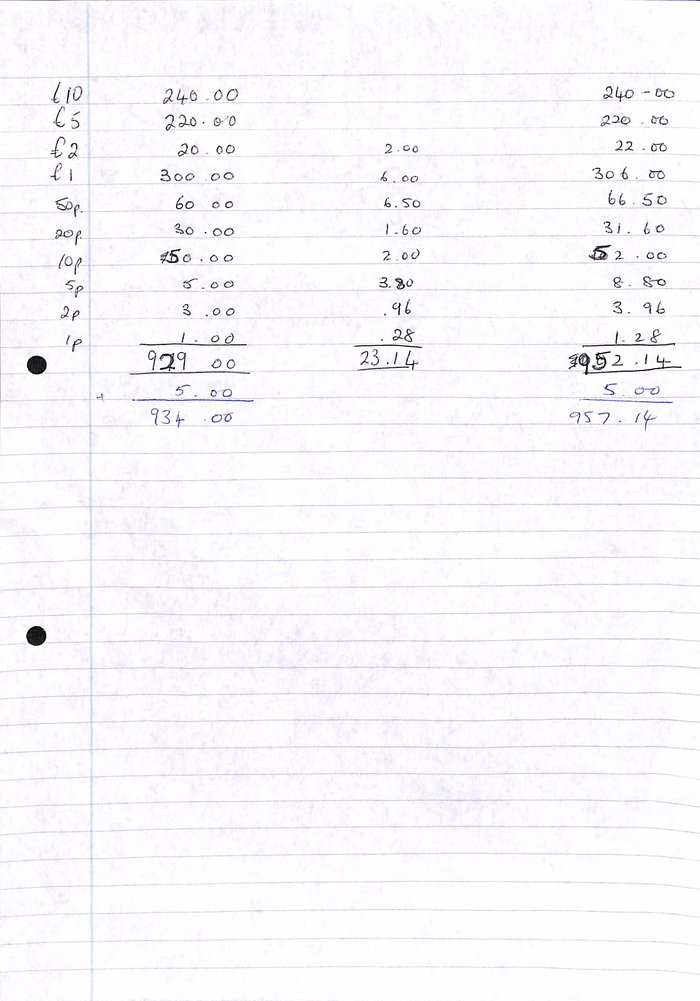 £10 240.00 240-00
£5 220.00 220.00
£2 20.00 2.00 22.00
£1 300.00 6.00 306.00
50p. 60 00 6.50 66.50
20p. 30.00 1.60 31.60
10p 50.00 2.00 52.00
5p 5.00 3.80 8.80
2p 3.00 .96 3.96
1p 1.00 .28 1.28
929 00 23.14 952.14
+ 5.00 5.00
934.00 957.14